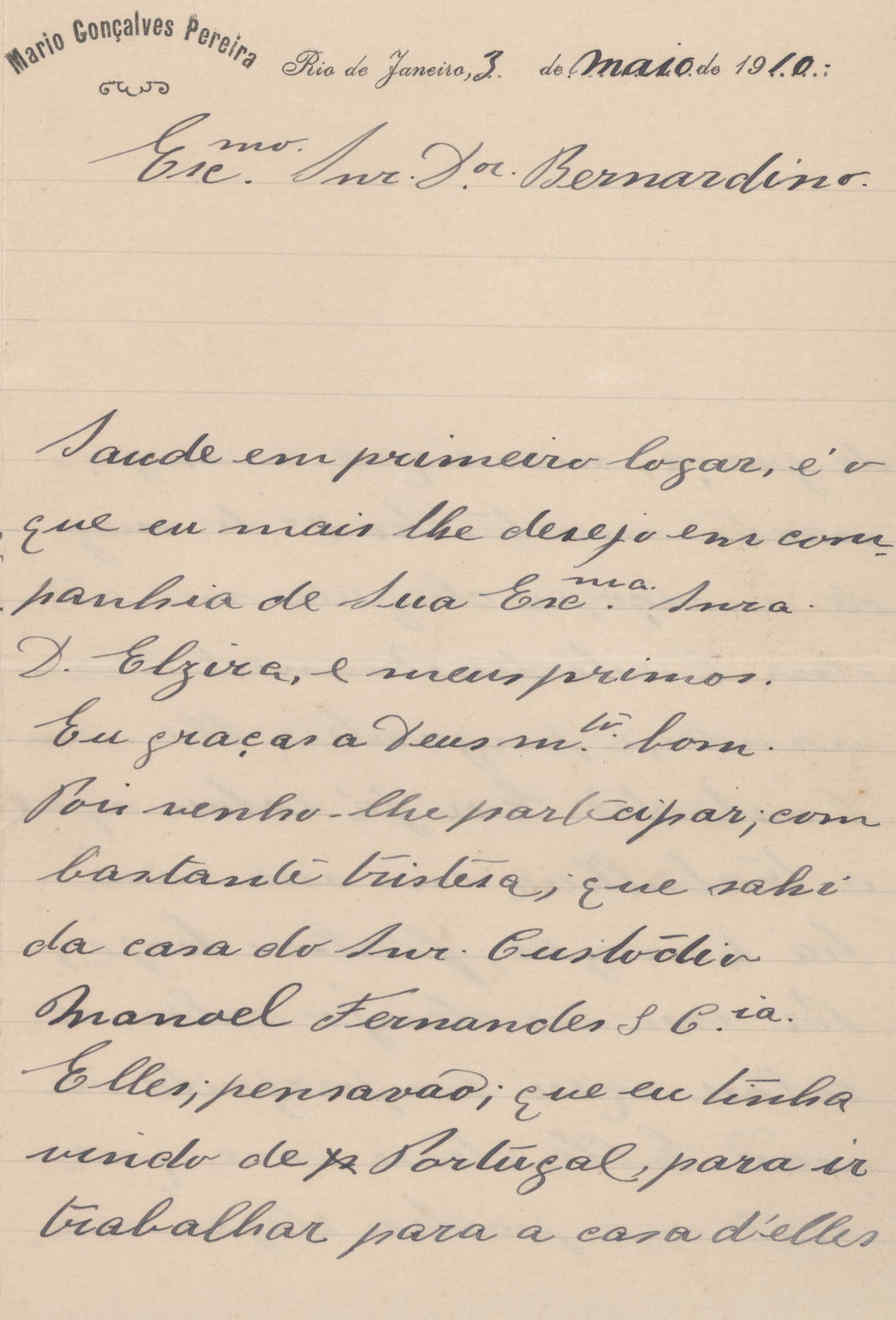 Mario Gonçalves Pereira
Rio de Janeiro, 3 de maio de 1910.:
Exc.mo. Snr. D.or. Bernardino.
Saude em primeiro logar, é o
que eu mais lhe desejo em com-
panhia de Sua Exc.ma. Snra.
D. Elzira, e meus primos.
Eu graças a Deus m.to. bom.
Pois venho-lhe participar; com
bastante tristesa; que sahi
da casa do Snr. Custódio
Manoel Fernandes & C.ia.
Elles; pensavão; que eu tinha
vindo de Portugal, para ir
trabalhar para a casa d'elles